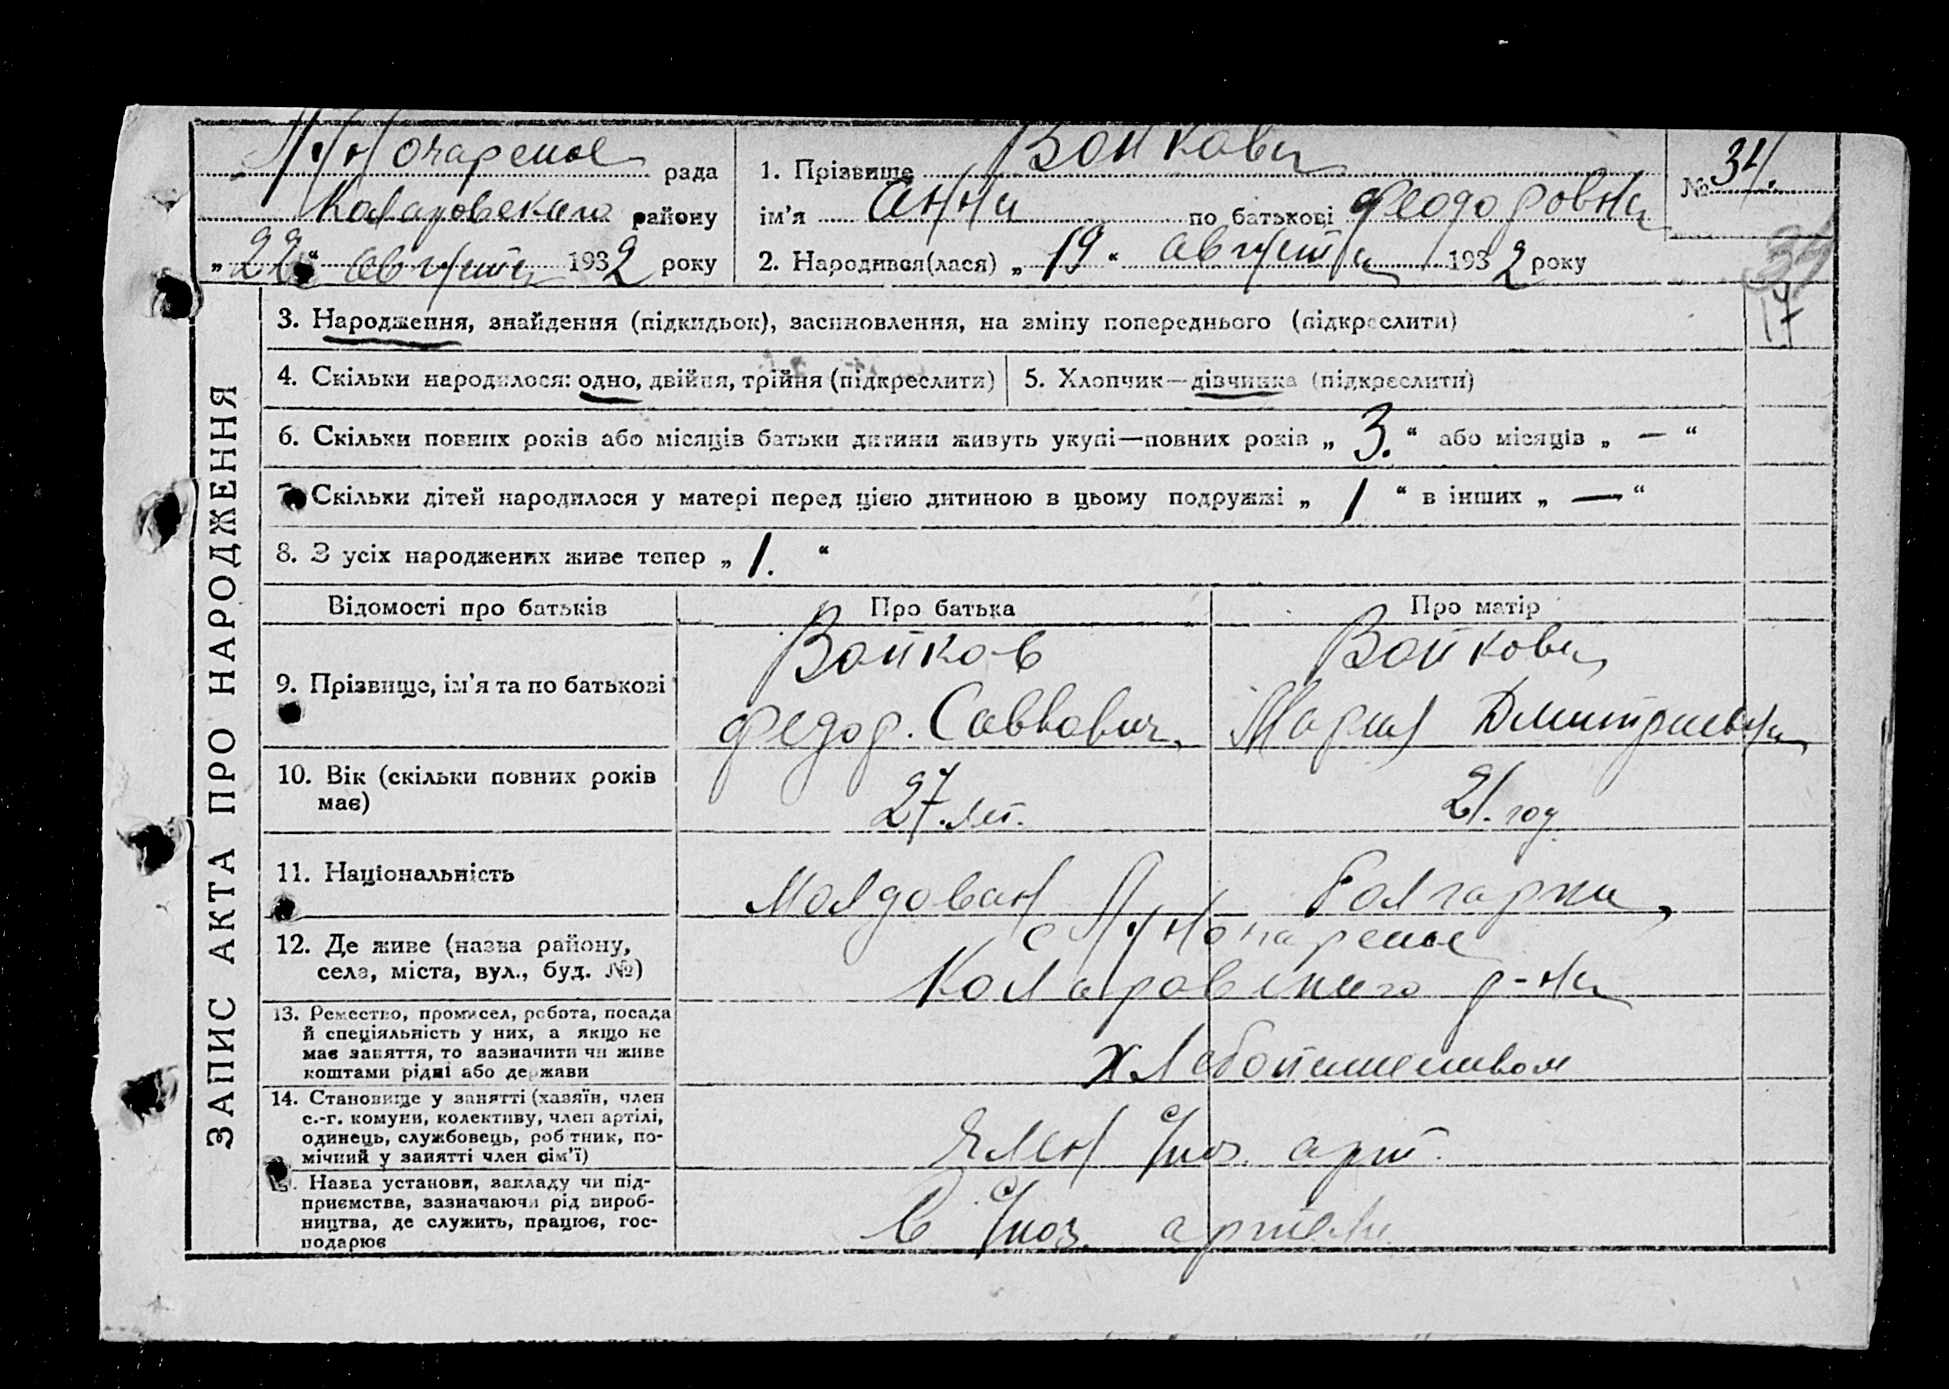 рада
Коларовского району
„22“ августа 1932 року
1. Прізвище Войкова
ім'я Анна по батькові Феодоровна
2. Народився(лася) „19“ августа 1932 року
№ 34.
34
17
ЗАПИС АКТА ПРО НАРОДЖЕННЯ
3. Народження, знайдення (підкидьок), засиновлення, на зміну попереднього (підкреслити)
4. Скільки народилося: одно, двійня, трійня (підкреслити)
5. Хлопчик—дівчинка (підкреслити)
6. Скільки повних років або місяців батьки дитини живуть укупі—повних років „3.“ або місяців „—“
Скільки дітей народилося у матері перед цією дитиною в цьому подружжі „1“ в інших „—“
8. З усіх народжених живе тепер „1.“
Відомості про батьків
Про батька
Про матір
9. Прізвище, ім'я та по батькові
Войков
Федор. Саввович,
Войкова,
Мария Дмитриевна,
10. Вік (скільки повних років
має)
27. лет.
21. год
11. Національність
Молдован
Болгарка,
12. Де живе (назва району,
села, міста, вул., буд. №)
с
Коларовского р-на
13. Ремество, промисел, робота, посада
й спеціяльність у них, а якщо не
має заняття, то зазначити чи живе
коштами рідні або держави
Хлебопашеством
14. Становище у занятті (хазяїн, член
с.-г. комуни, колективу, член артілі,
одинець, службовець, робітник, по-
мічний у занятті член сім'ї)
Член с/хоз. арт.
Назва установи, закладу чи під-
приємства, зазначаючи рід вироб-
ництва, де служить, працює, гос-
подарює
В с/хоз. артели